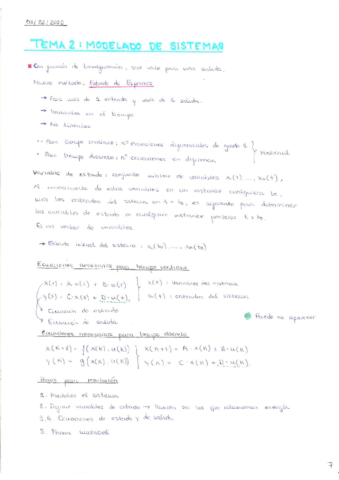 TEMA 2: MODELADO DE SISTEMAS
* Con función de transferencia, solo vale para una salida.
Nuevo método, Espacio de Estados
→ Para más de 1 entrada y más de 1 salida.
→ Variantes en el tiempo
→ No lineales
• Para tiempo continuo: nº ecuaciones diferenciales de grado 1.
• Para tiempo discreto: nº ecuaciones en diferencias.
Variables de estado: conjunto mínimo de variables x1(t), ..., xn(t),
el conocimiento de estas variables en un instante cualquiera to,
más las entradas del sistema en t = to, es suficiente para determinar
las variables de estado en cualquier instante posterior t > to.
Es un vector de variables.
→ Estado inicial del sistema: x1(to), ..., xn(to)
Ecuaciones necesarias para tiempo continuo
x(t) = A·x(t) + B·u(t)
y(t) = C·x(t) + D·u(t)
x(t): variables del sistema
u(t): entradas del sistema
Puede no aparecer
→ Ecuación de estado
→ Ecuación de salida
Ecuaciones necesarias para tiempo discreto
x(k+1) = f(x(k), u(k)) x(k+1) = A·x(k) + B·u(k)
y(k) = g(x(k), u(k)) y(k) = C·x(k) + D·u(k)
Pasos para resolución
1. Modelar el sistema
2. Definir variables de estado → las que almacenan energía
3. Ecuaciones de estado y de salida
5. Pasar
7